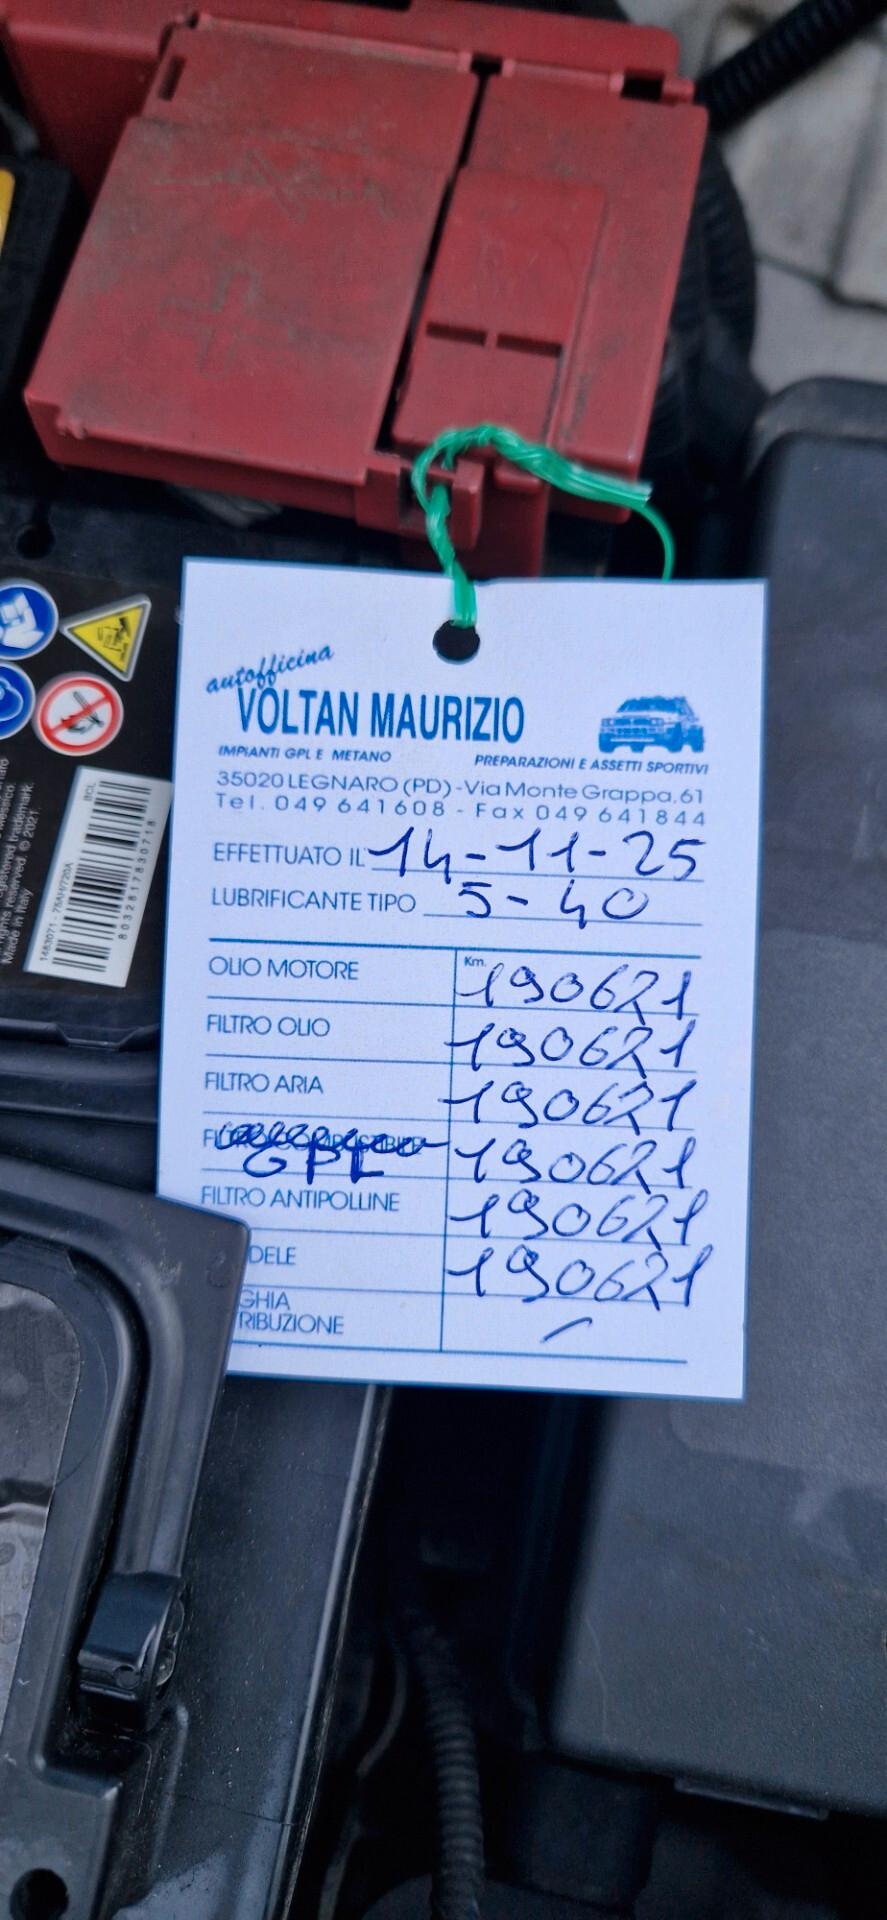 autofficina
VOLTAN MAURIZIO
IMPIANTI GPL E METANO PREPARAZIONI E ASSETTI SPORTIVI
35020 LEGNARO (PD) - Via Monte Grappa, 61
Tel. 049 641608 - Fax 049 641844
EFFETTUATO IL 14-11-25
LUBRIFICANTE TIPO 5-40
OLIO MOTORE Km. 190621
FILTRO OLIO 190621
FILTRO ARIA 190621
FILTRO COMBUSTIBILE
GPL 190621
FILTRO ANTIPOLLINE 190621
DELE 190621
GHIA
RIBUZIONE -
registered trademark.
rights reserved. © 2021
Made in Italy
BCL
8032817830718